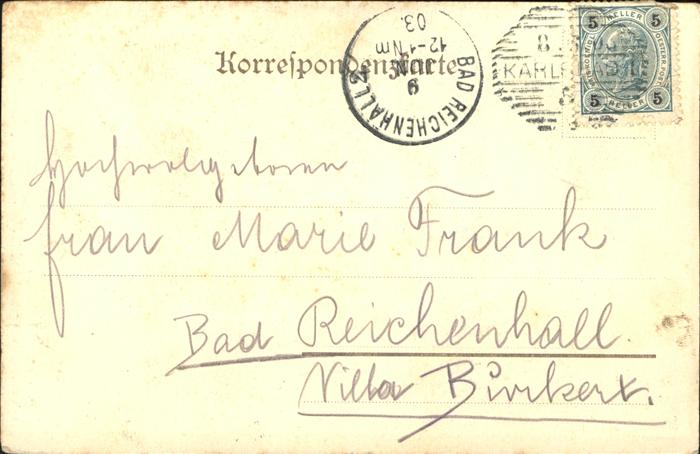 Korrespondenzkarte
BAD REICHENHALL 2
9 JUN
12-1 Nm
03.
8
KARLSBAD
5 HELLER 5
5 HELLER 5
Hochwolgeboren
Frau Marie Frank
Bad Reichenhall.
Villa